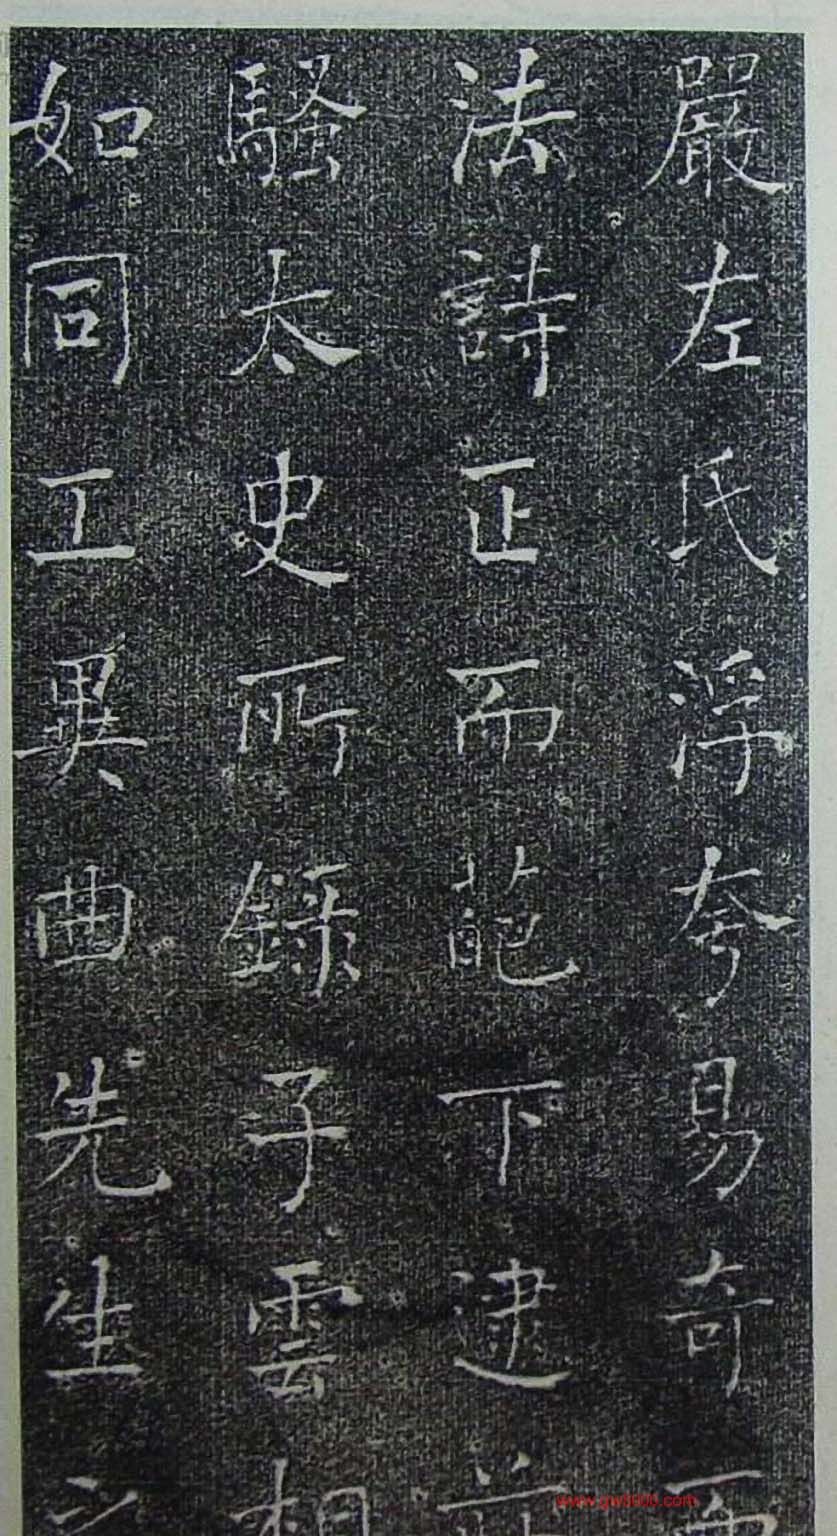 嚴左氏浮夸易奇而
法詩正而葩下逮莊
騷太史所錄子雲相
如同工異曲先生之
www.gw8600.com